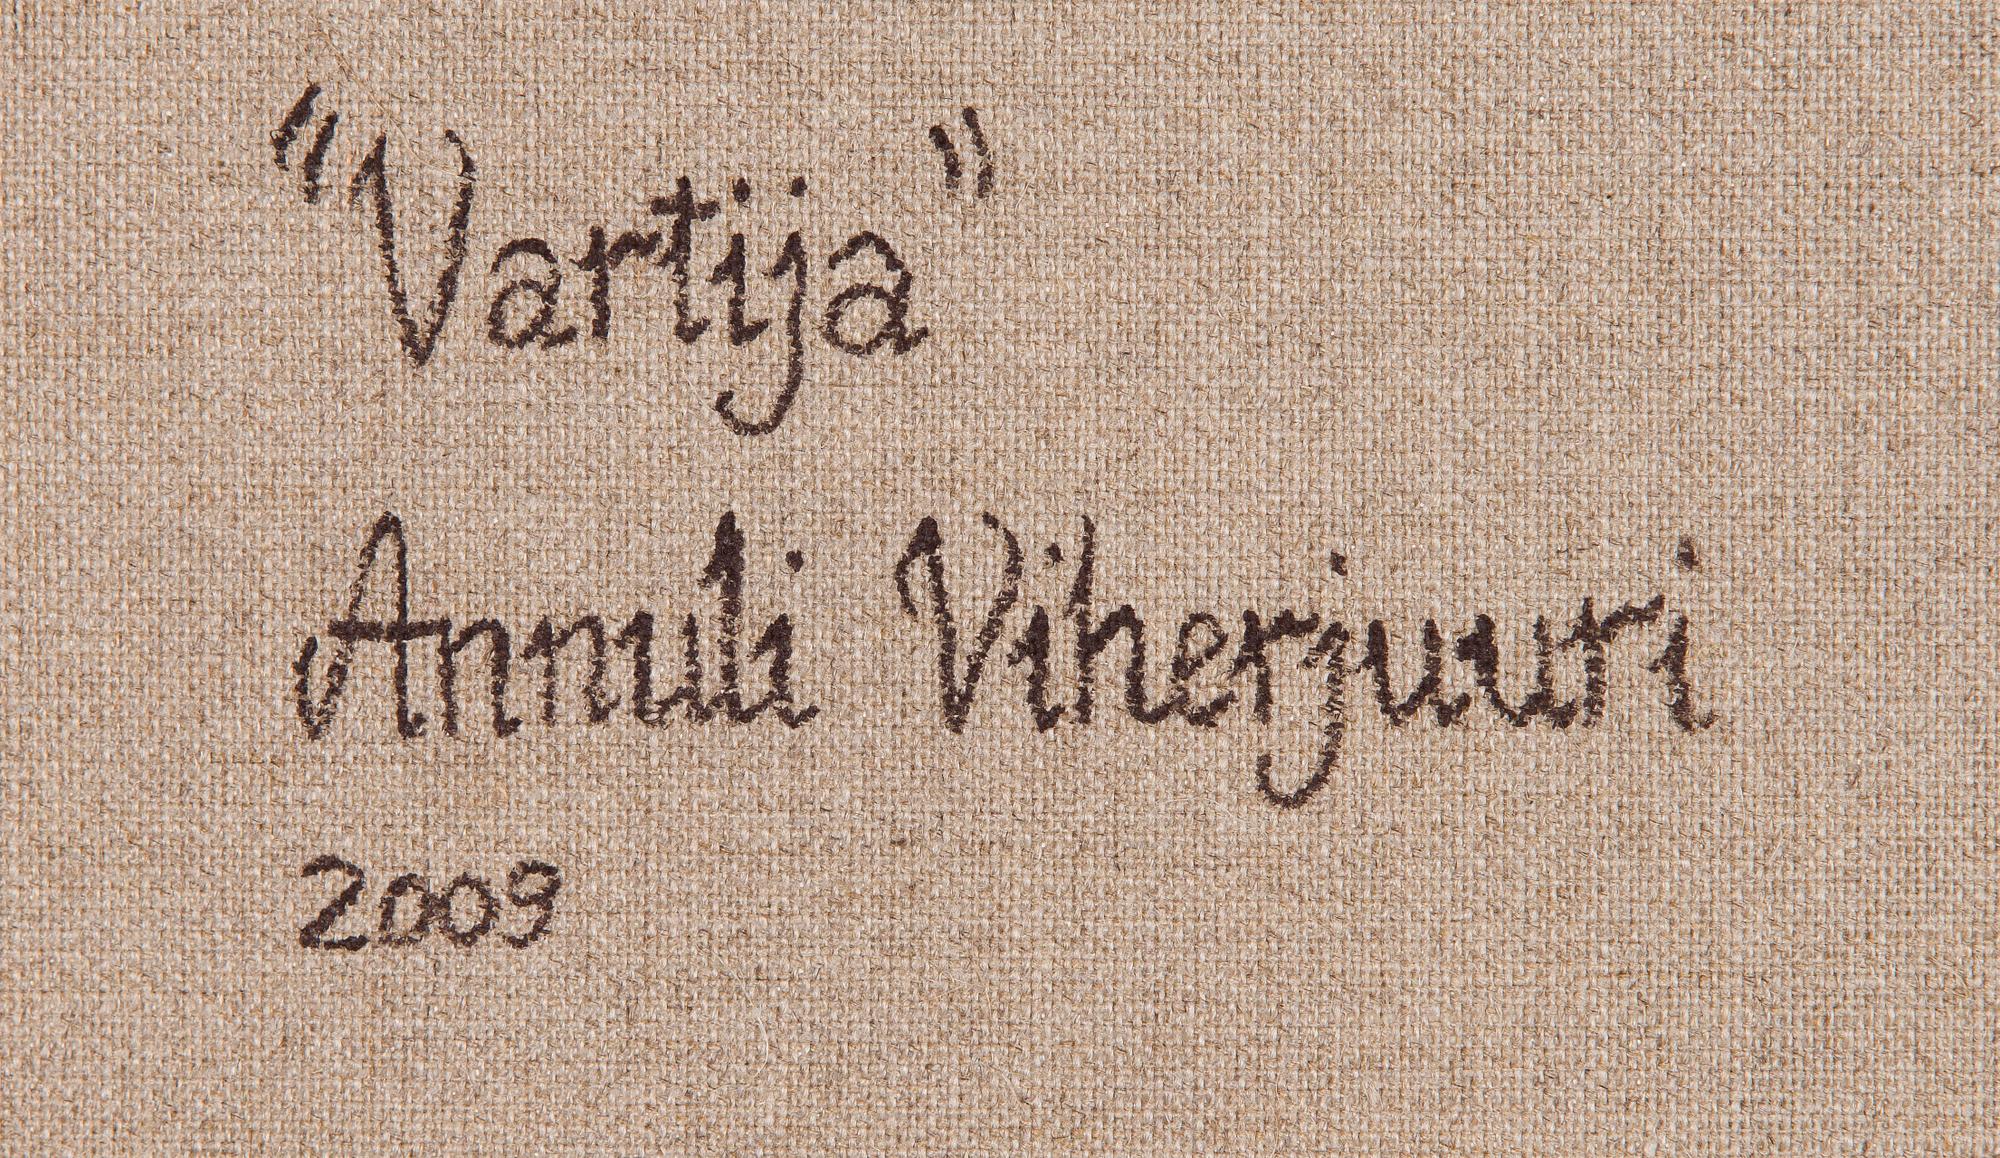 "Vartija"
Annuli Viherjuuri
2009